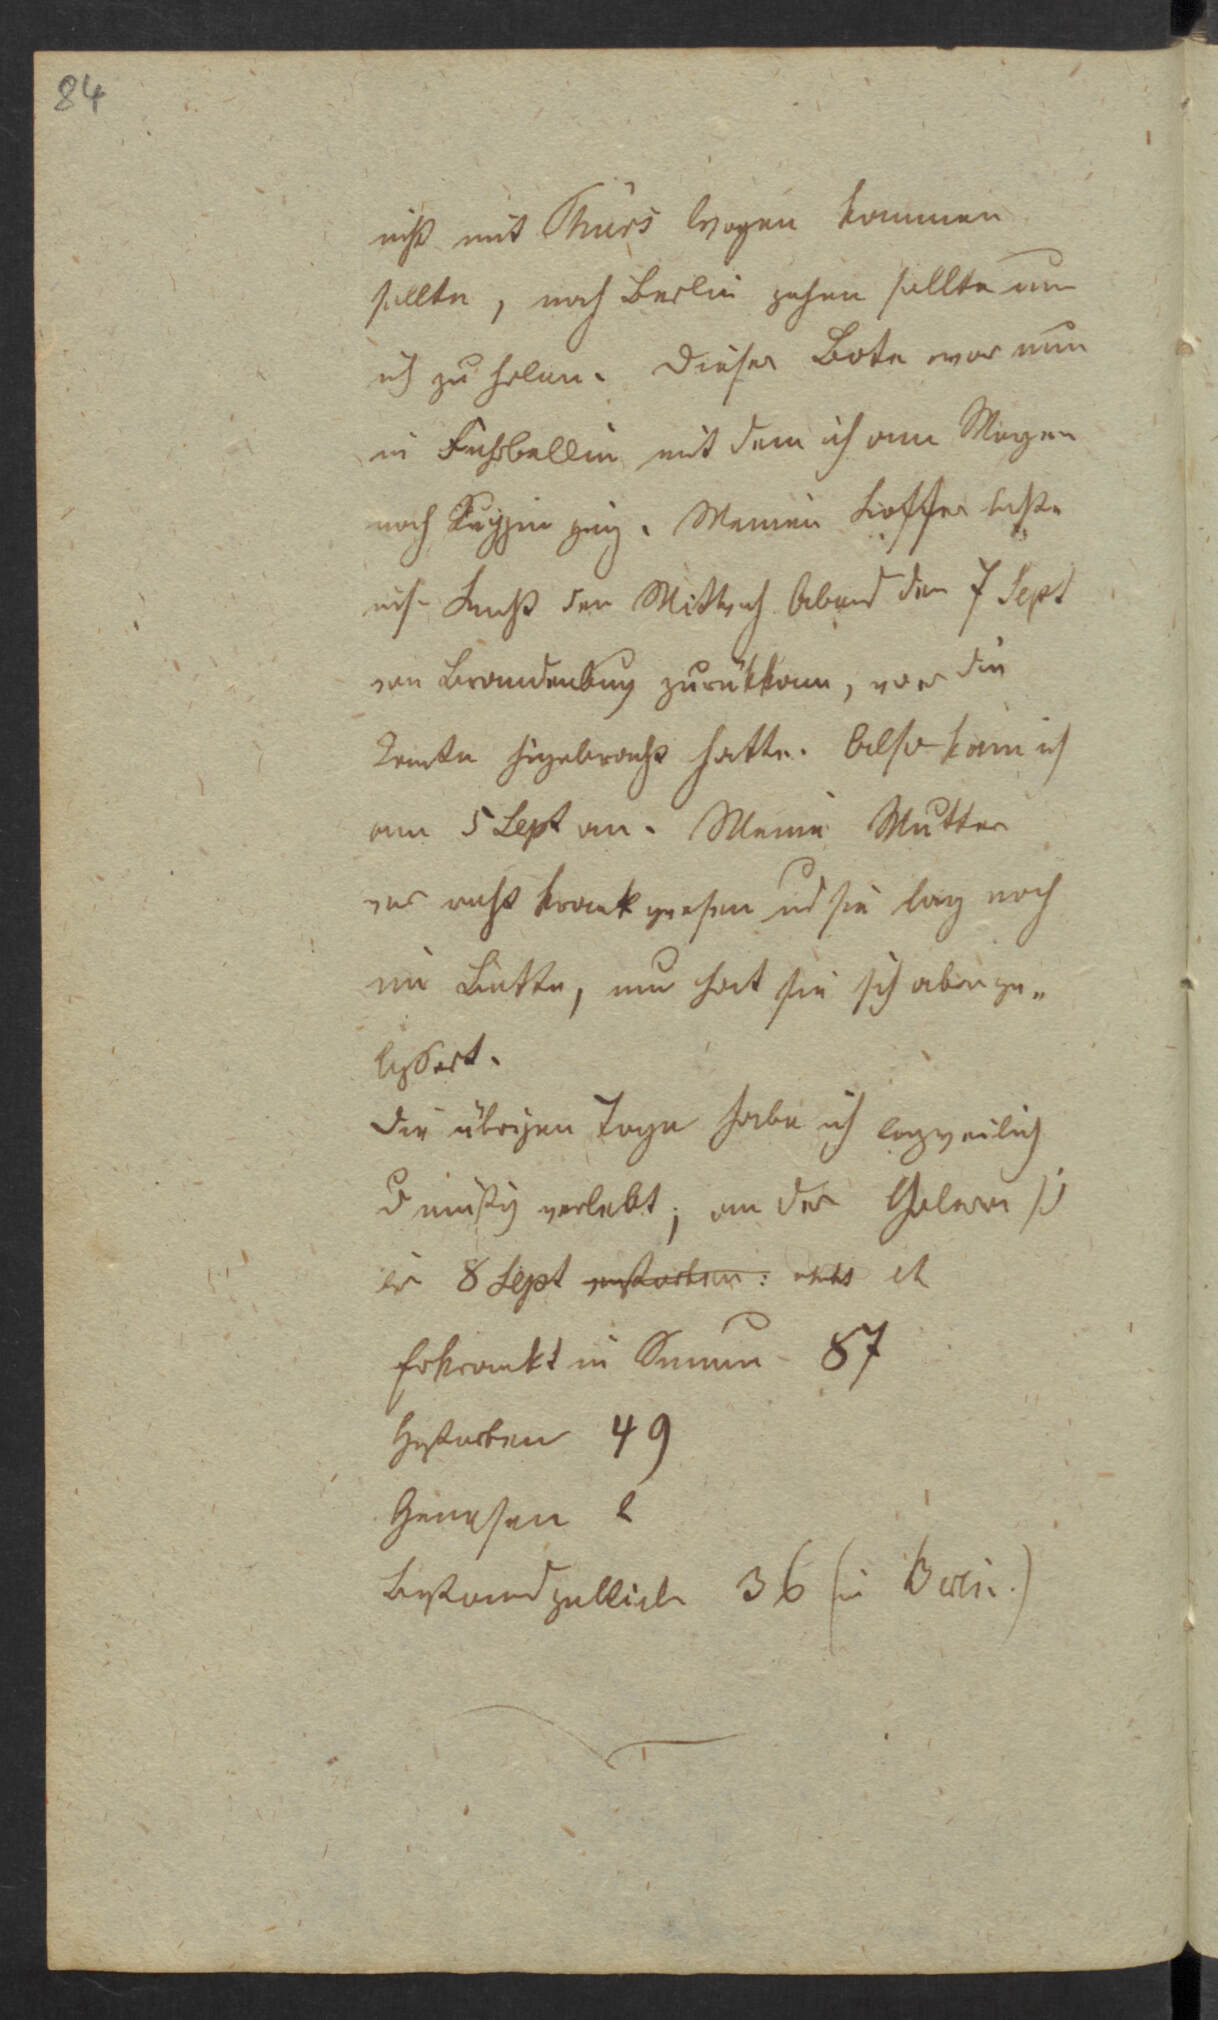 84
nicht mit Thürs Wagen kommen
sollte, nach Berlin gehen sollte um
ich zu holen. Dieser Bote war nun
in Fehrbellin mit dem ich am Morgen
nach Ruppin ging. Meinen Koffer
den Mittwoch Abend den 7 Sept
von Brandenburg zurückkam, wo er die
hingebracht hatte. Also kam ich
am 5 Sept an. Meine Mutter
war recht krank gewesen und sie lag noch
im Bette, nun hat sie sich aber ge„
bessert.
Die übrigen Tage habe ich langweilig
u müßig verlebt; an der Cholera sind
bis 8 Sept
Erkrankt in Summa 87
Gestorben 49
Genesen 2
Bestand geblieben 36 (in Berlin.)